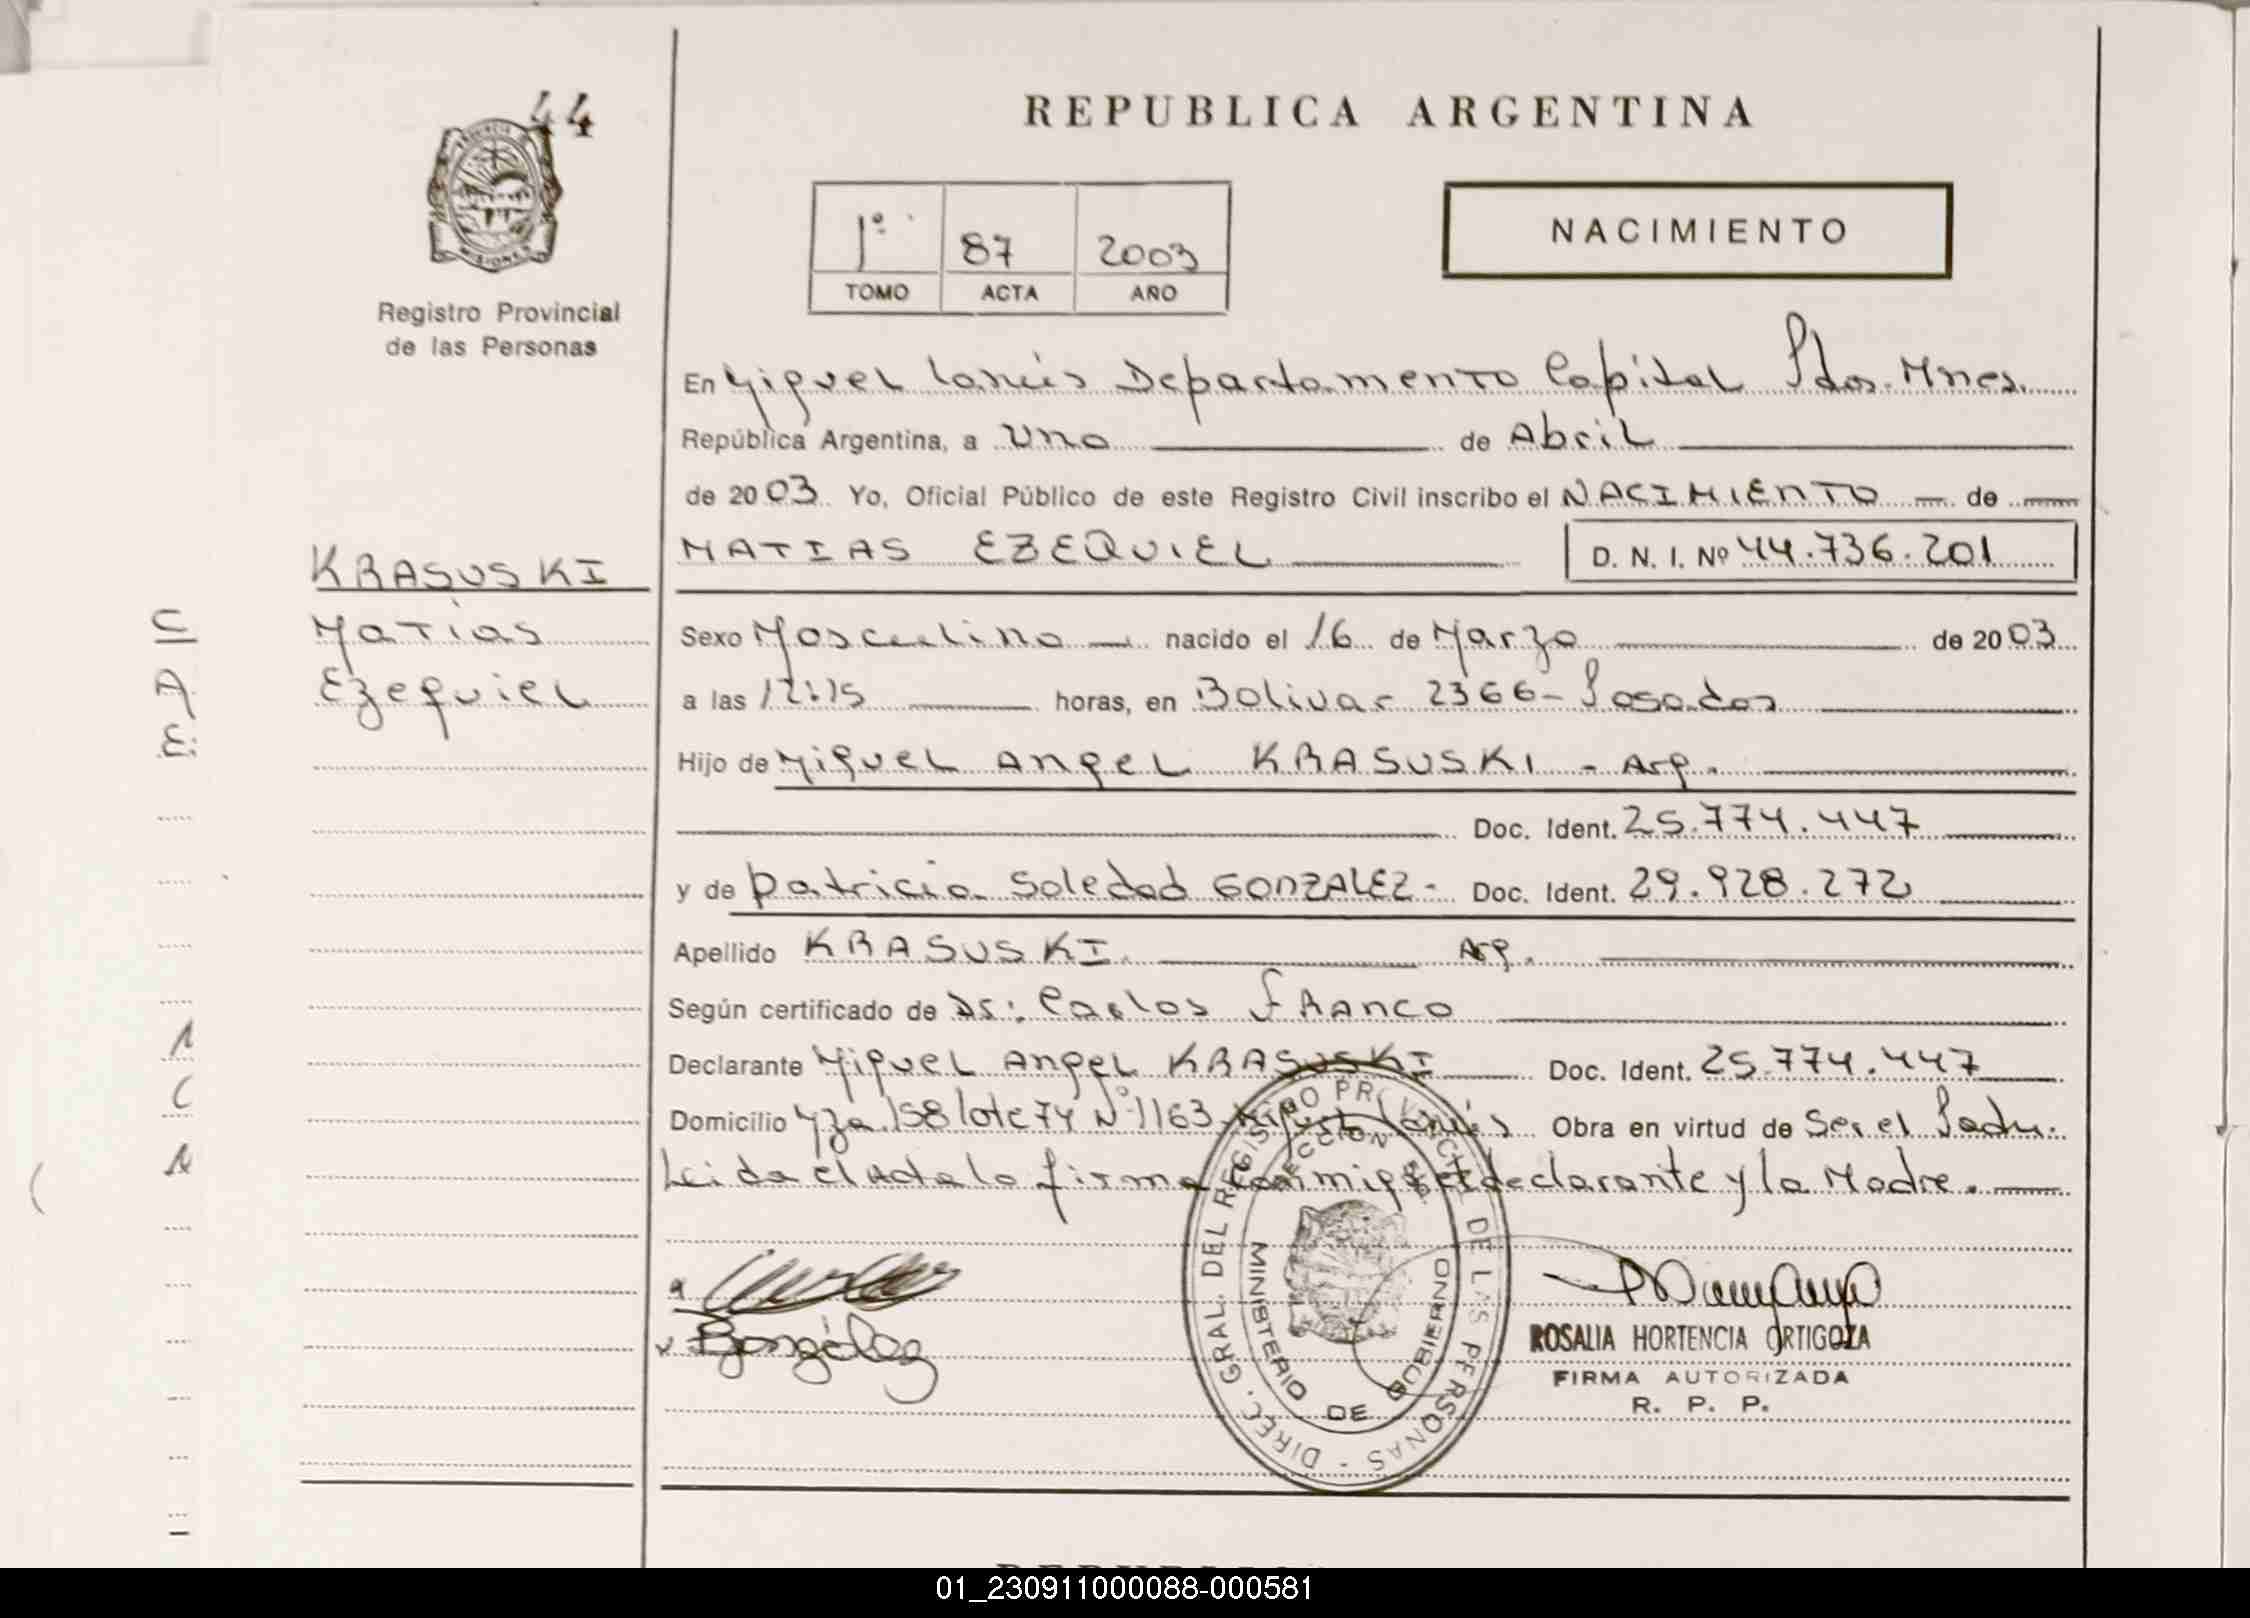 44
REPUBLICA ARGENTINA
1º 87 2003
TOMO ACTA AÑO
NACIMIENTO
MISIONES
Registro Provincial
de las Personas
En Miguel Lanús Departamento Capital Pdas. Mnes.
República Argentina, a Uno de Abril
de 2003 Yo, Oficial Público de este Registro Civil inscribo el NACIMIENTO de
MATIAS EZEQUIEL D. N. I. Nº 44.736.201
KRASUSKI
Matias
Ezequiel
Sexo Masculino nacido el 16 de Marzo de 2003
a las 12:15 horas, en Bolivar 2366- Posadas
Hijo de Miguel Angel KRASUSKI - Arg.
Doc. Ident. 25.774.447
y de Patricia Soledad GONZALEZ- Doc. Ident. 29.928.272
Apellido KRASUSKI. Arg.
Según certificado de Dr: Carlos FRANCO
Declarante Miguel Angel KRASUSKI Doc. Ident. 25.774.447
Domicilio Mza. 158 lote 74 Nº 1163 Miguel Lanús Obra en virtud de Ser el Padre.
Leida el Acta la firma conmigo el declarante y la Madre.
DIREC. GRAL. DEL REGISTRO PROVINCIAL DE LAS PERSONAS -
MINISTERIO DE GOBIERNO
González
ROSALIA HORTENCIA ORTIGOZA
FIRMA AUTORIZADA
R. P. P.
01_230911000088-000581